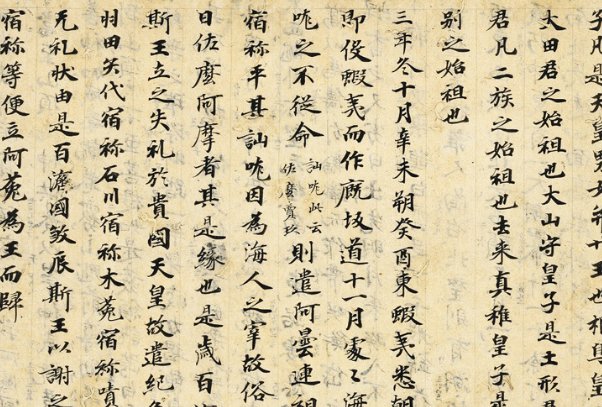 子凡是天皇男女并廿王也根鳥皇
大田君之始祖也大山守皇子是土形君
君凡二族之始祖也去来真稚皇子是
別之始祖也
三年冬十月辛未朔癸酉東蝦夷悉朝
即役蝦夷而作厩坂道十一月處〻海
咙之不従命訕咙此云佐麼賣玖則遣阿曇連祖
宿祢平其訕咙因為海人之宰故俗
日佐麼阿摩者其是縁也是歳百
斯王立之失礼於貴國天皇故遣紀角
羽田矢代宿祢石川宿祢木菟宿祢嘖
无礼状由是百濟國敦辰斯王以謝之
宿祢等便立阿菀為王而歸